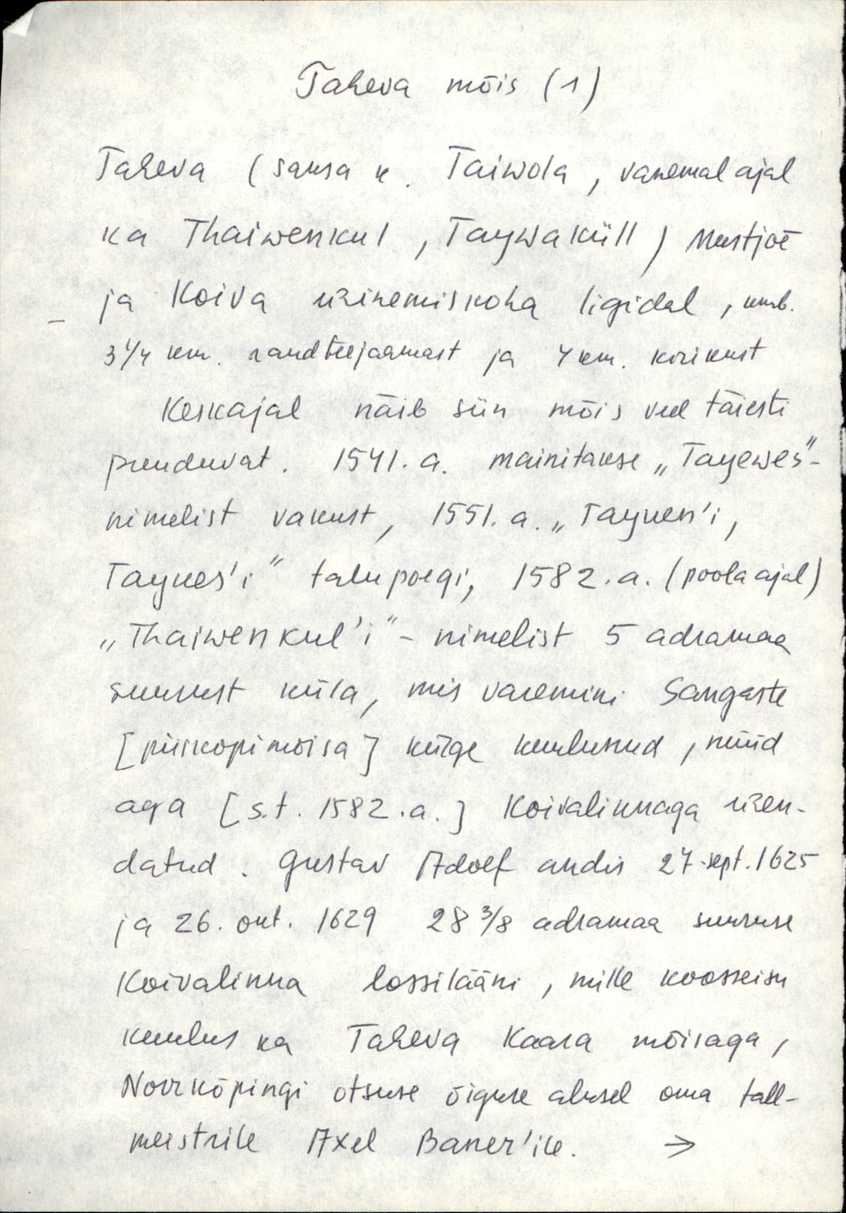 Taheva mõis (1)
Taheva (saksa k. Taiwola, vanemal ajal
ka Thaiwenkul, Taywaküll) Mustjõe
ja Koiva ühinemiskoha ligidal, umb.
3 1/4 km. raudteejaamast ja 4 km. kirikust
Keskajal näib siin mõis veel täiesti
puuduvat. 1541. a. mainitakse „Tayewes"-
nimelist vakust, 1551. a. „Taynen'i,
Taynes'i" talupoegi, 1582. a. (poola ajal)
„Thaiwenkul'i" - nimelist 5 adramaa
suurust küla, mis varemini Sangaste
[piiskopimõisa] külge kuulunud, nüüd
aga [s.t. 1582. a.] Koivalinnaga ühen-
datud. Gustav Adolf andis 27. sept. 1625
ja 26. okt. 1629 28 3/8 adramaa suuruse
Koivalinna lossilääni, mille koosseisu
kuulus ka Taheva Kaara mõisaga,
Norrköpingi otsuse õiguse alusel oma tall-
meistrile Axel Baner'ile. →